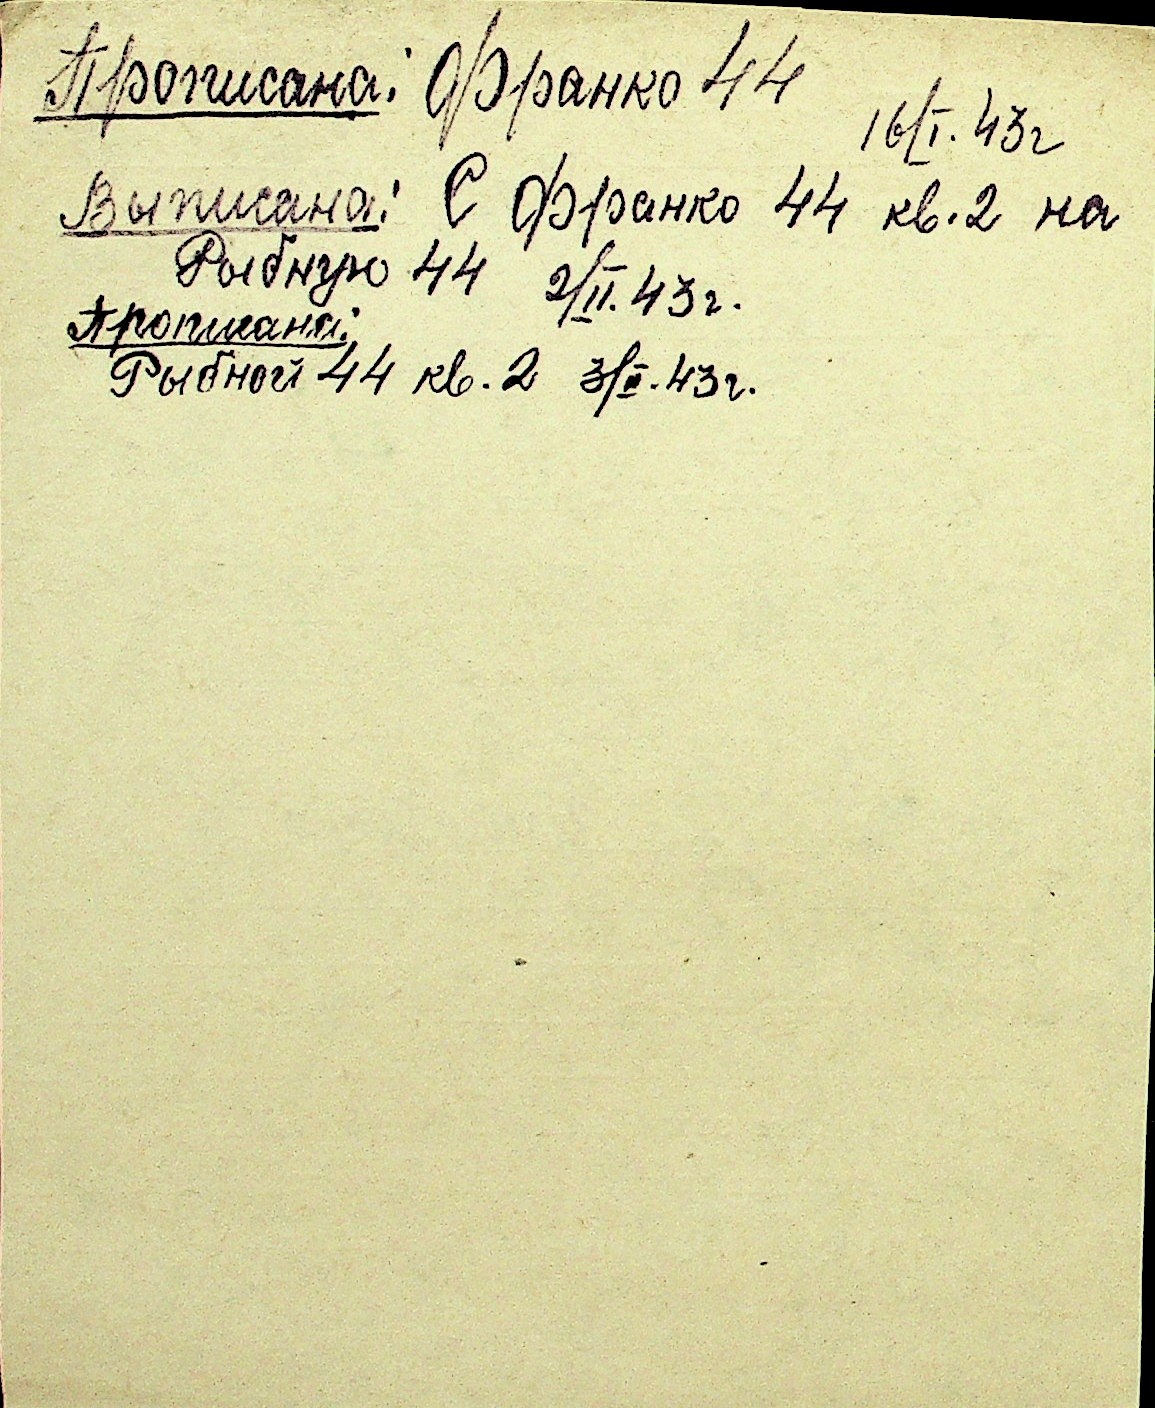 Прописана: Франко 44
16/I. 43г
Выписана: С Франко 44 кв. 2 на
Рыбную 44 2/II. 43г.
Прописана:
Рыбной 44 кв. 2 3/II. 43г.